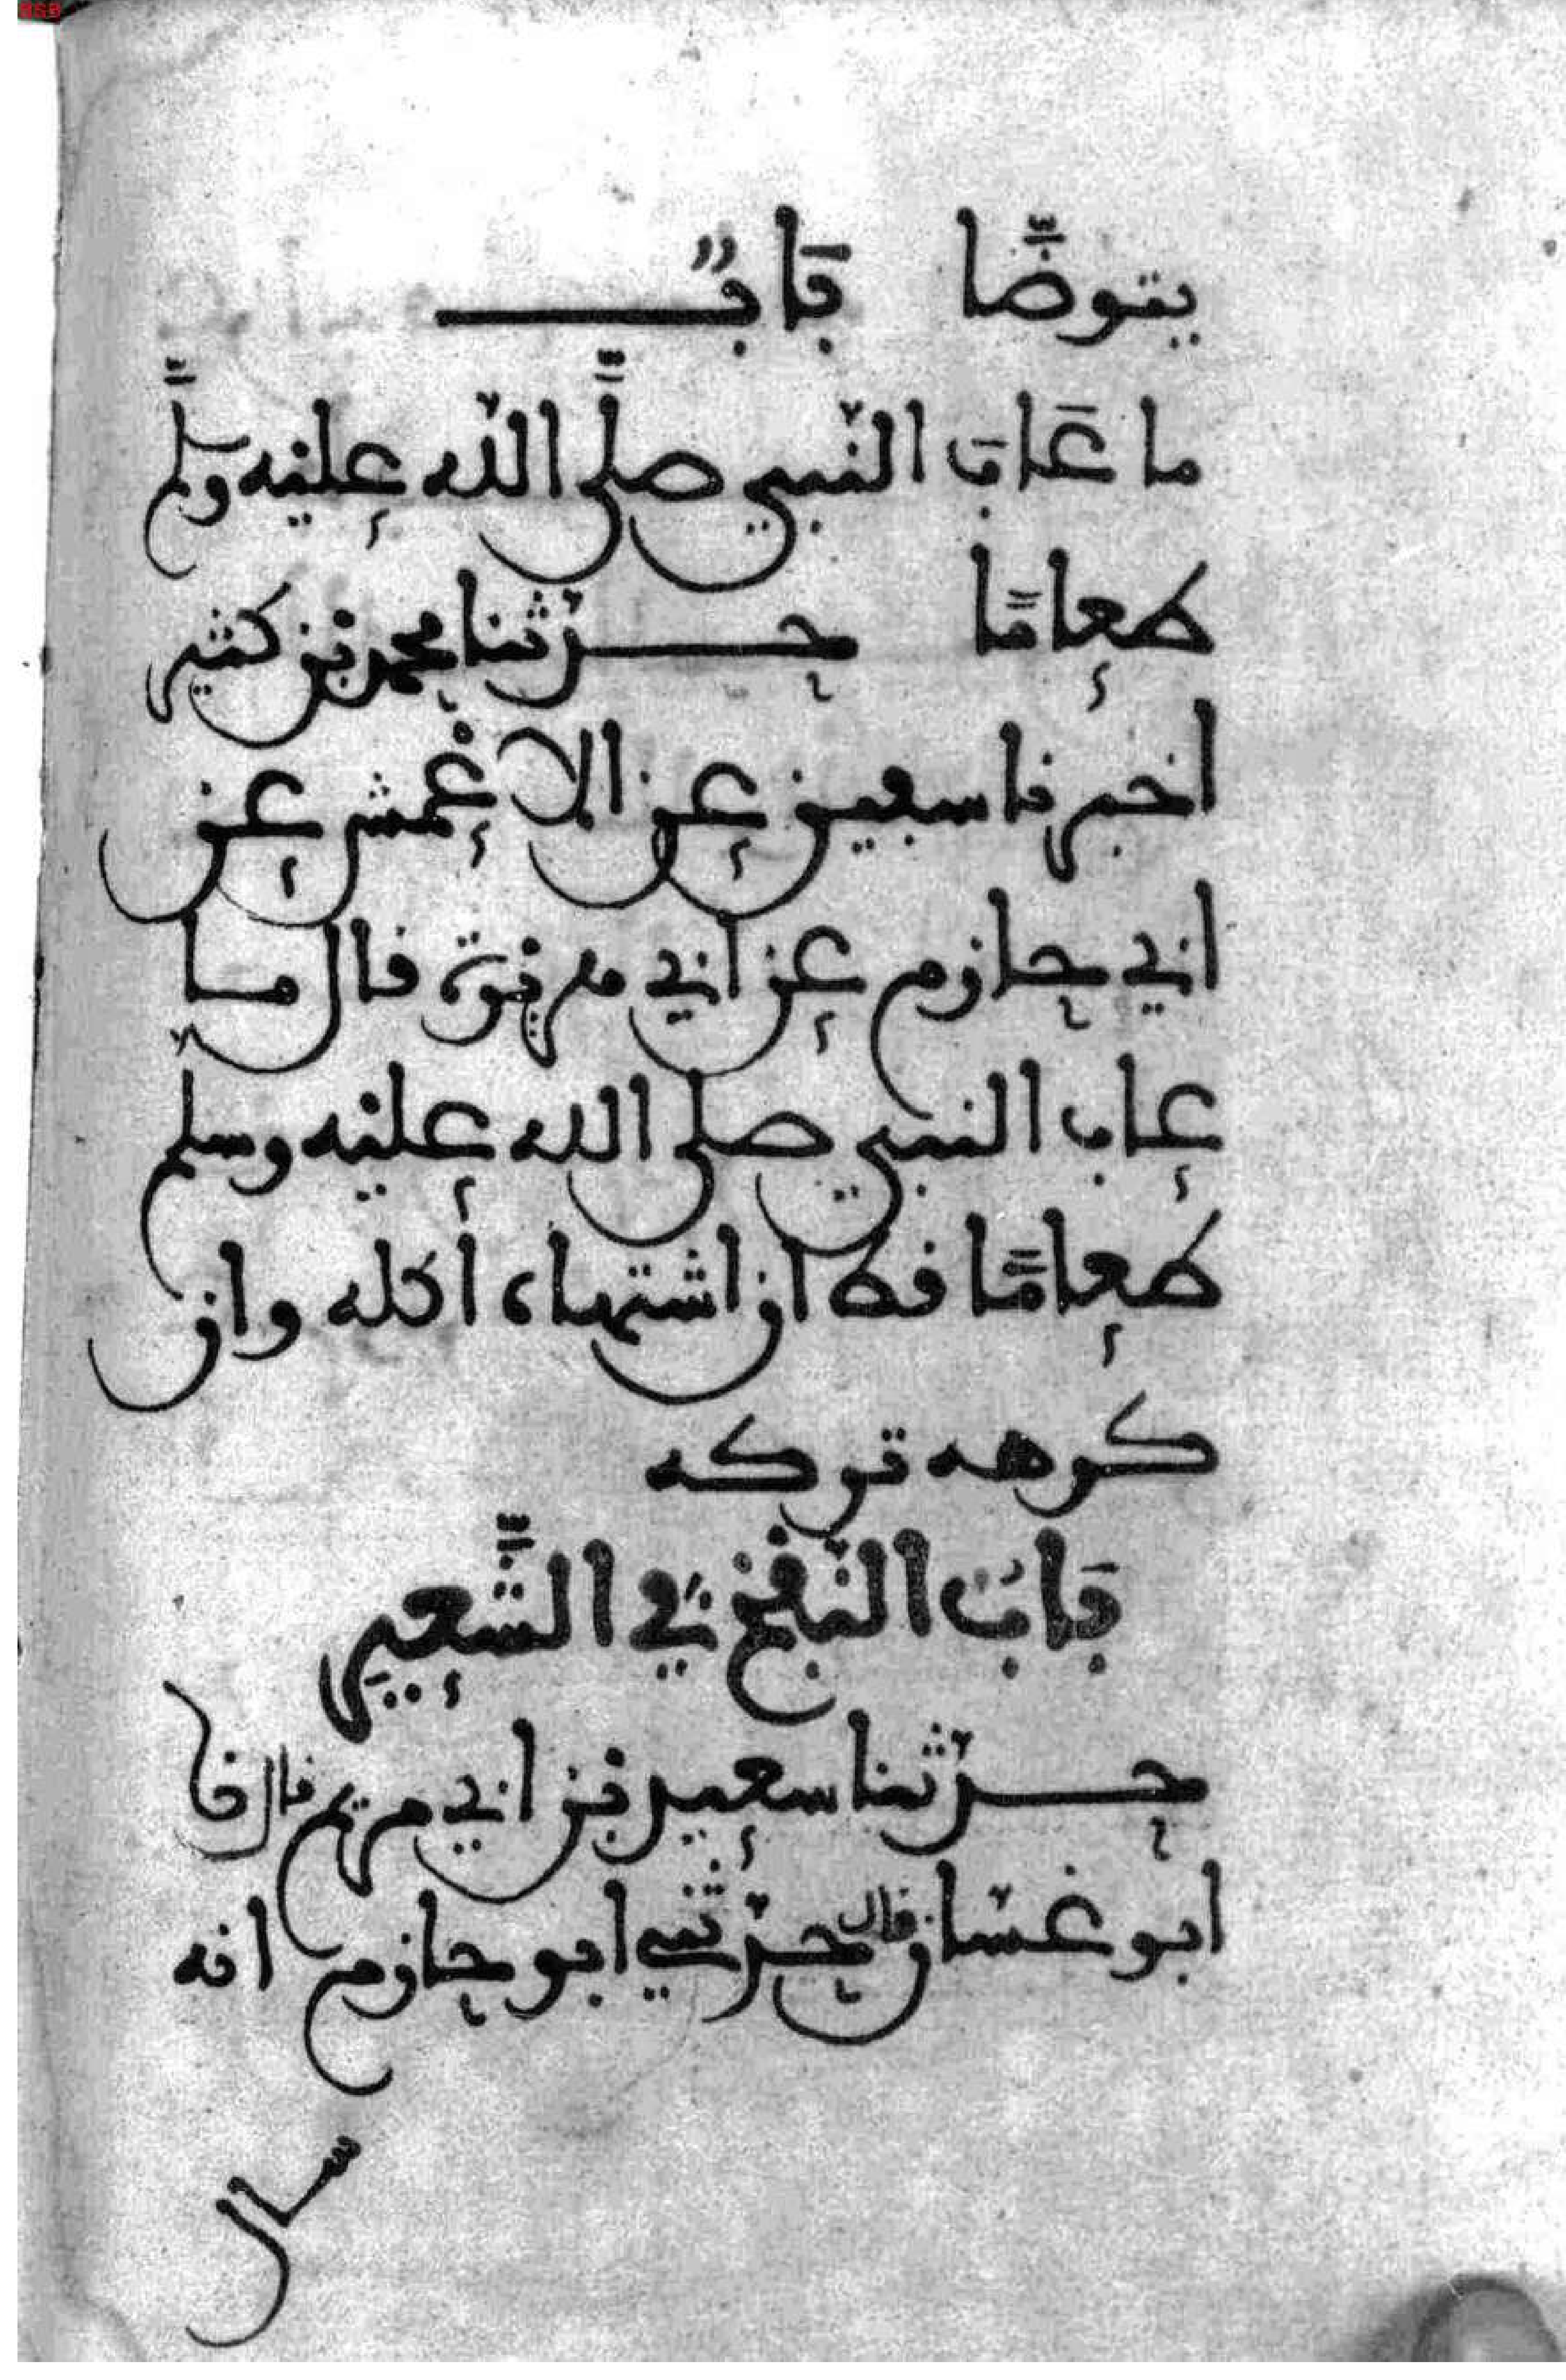 BSB
يتوضّأ بَابٌ
ما عَابَ النّبي صلَّى اللّه عليه وسلَّم
طعامًا حدّثنا محمد بن كثير
اخبرنا سفين عن الاعْمش عن
ابي حازم عن ابي هريرة قال ما
عاب النبي صلى الله عليه وسلم
طعامًا قط ان اشتهاه أكله وان
كرهه تركه
بَابُ النّفخ في الشَّعير
حدّثنا سعيد بن ابي مريم قال نا
ابو غسّان قال حدّثني ابو حازم انه
سال